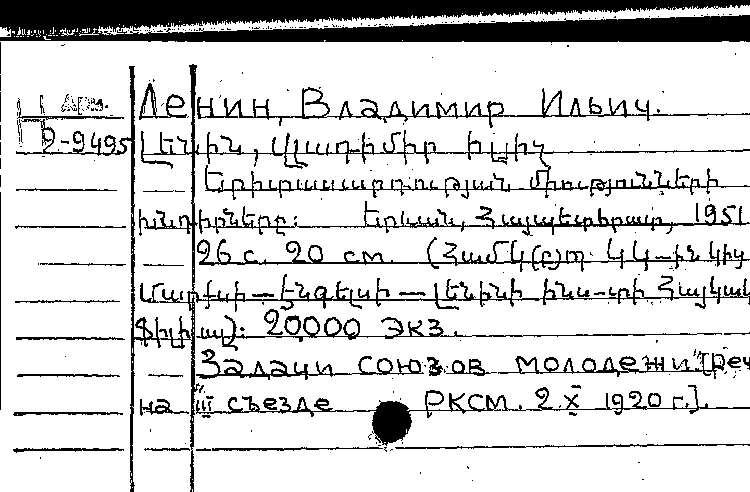 Арм.
Ленин, Владимир Ильич.
2-9495
Լենին, Վլադիմիր Իլյիչ
Երիտասարդության միությունների
խնդիրները: Երևան, Հայպետհրատ, 1951
26 с. 20 см. (Համկ(բ)Կ ԿԿ-ին կից
Մարքսի — Էնգելսի — Լենինի ինս-տի Հայկակ
ֆիլիալ): 20000 экз.
Задачи союзов молодежи [реч
на III съезде РКСМ. 2 X 1920 г.].